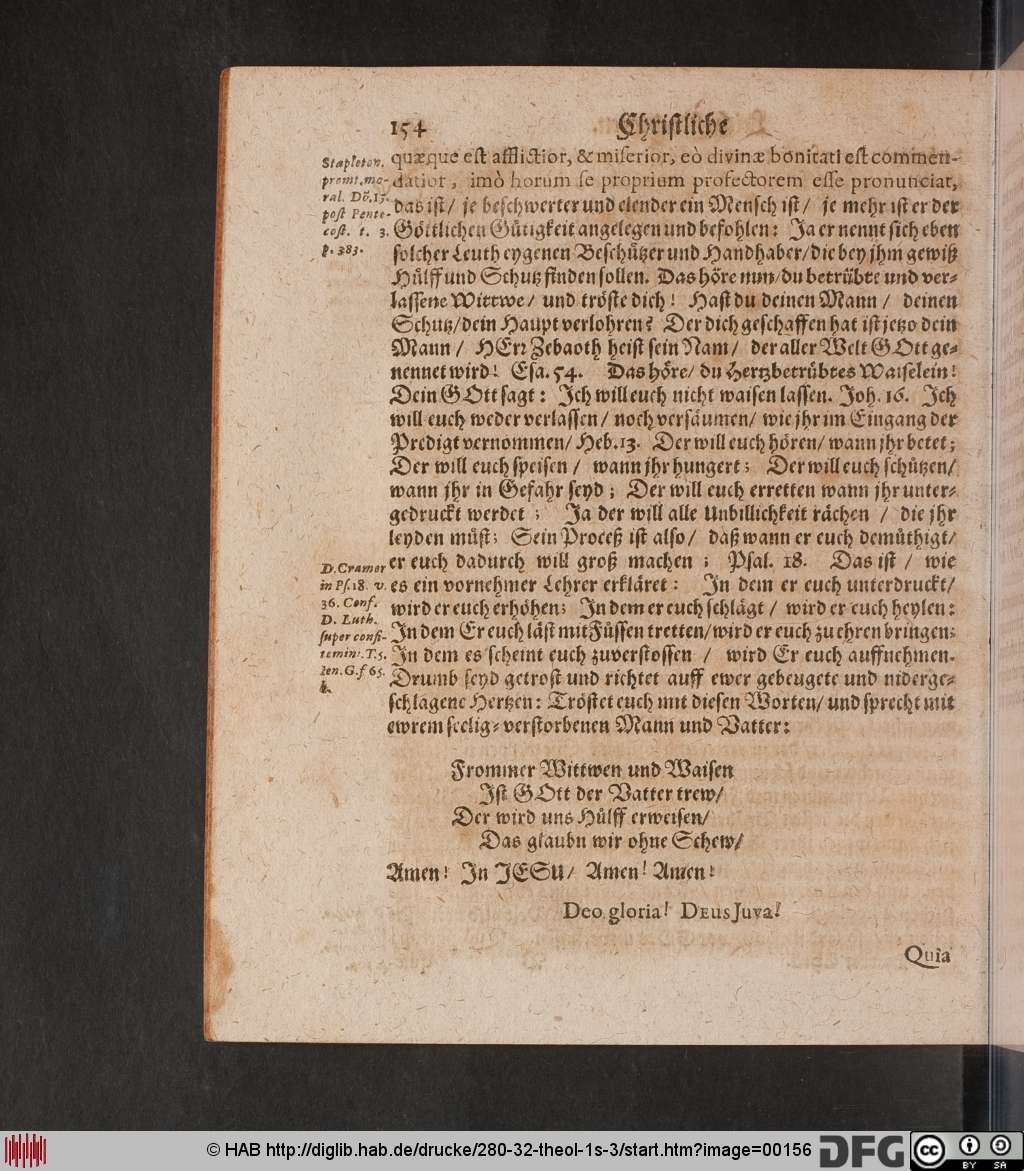 154 Christliche
Stapleton.
promt. mo-
ral. Dō. 17.
post Pente-
cost. t. 3.
p. 383.
quæque est afflictior, & miserior, eò divinæ bonitati est commen-
datior, imò horum se proprium profectorem esse pronunciat,
das ist/ je beschwerter und elender ein Mensch ist/ je mehr ist er der
Göttlichen Gütigkeit angelegen und befohlen: Ja er nennt sich eben
solcher Leuth eygenen Beschützer und Handhaber/ die bey jhm gewiß
Hülff und Schutz finden sollen. Das höre nun/ du betrübte und ver-
lassene Wittwe/ und tröste dich! Hast du deinen Mann/ deinen
Schutz/ dein Haupt verlohren? Der dich geschaffen hat ist jetzo dein
Mann/ HErr Zebaoth heist sein Nam/ der aller Welt GOtt ge-
nennet wird! Esa. 54. Das höre/ du Hertzbetrübtes Waiselein!
Dein GOtt sagt: Ich will euch nicht waisen lassen. Joh. 16. Ich
will euch weder verlassen/ noch versäumen/ wie jhr im Eingang der
Predigt vernommen/ Heb. 13. Der will euch hören/ wann jhr betet;
Der will euch speisen/ wann jhr hungert; Der will euch schützen/
wann jhr in Gefahr seyd; Der will euch erretten wann jhr unter-
gedruckt werdet; Ja der will alle Unbillichkeit rächen/ die jhr
leyden müst; Sein Proceß ist also/ daß wann er euch demüthigt/
er euch dadurch will groß machen; Psal. 18. Das ist/ wie
es ein vornehmer Lehrer erkläret: In dem er euch unterdruckt/
wird er euch erhöhen; In dem er euch schlägt/ wird er euch heylen:
In dem Er euch läst mit Füssen tretten/ wird er euch zu ehren bringen;
In dem es scheint euch zuverstossen/ wird Er euch auffnehmen.
Drumb seyd getrost und richtet auff ewer gebeugete und niderge-
schlagene Hertzen: Tröstet euch mit diesen Worten/ und sprecht mit
ewrem seelig-verstorbenen Mann und Vatter:
D. Cramer
in Ps. 18. v.
36. Conf.
D. Luth.
super confi-
temini: T. 5.
Jen. G. f 65.
b.
Frommer Wittwen und Waisen
Ist GOtt der Vatter trew/
Der wird uns Hülff erweisen/
Das glaubn wir ohne Schew/
Amen! In JESU/ Amen! Amen!
Deo gloria! DEUS Juva!
Quia
© HAB http://diglib.hab.de/drucke/280-32-theol-1s-3/start.htm?image=00156
DFG
cc
BY SA